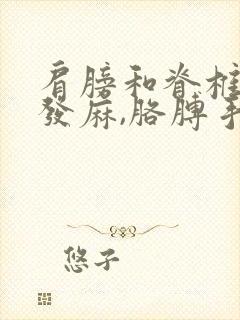 肩膀和脊椎
發麻,胳膊手
悠子